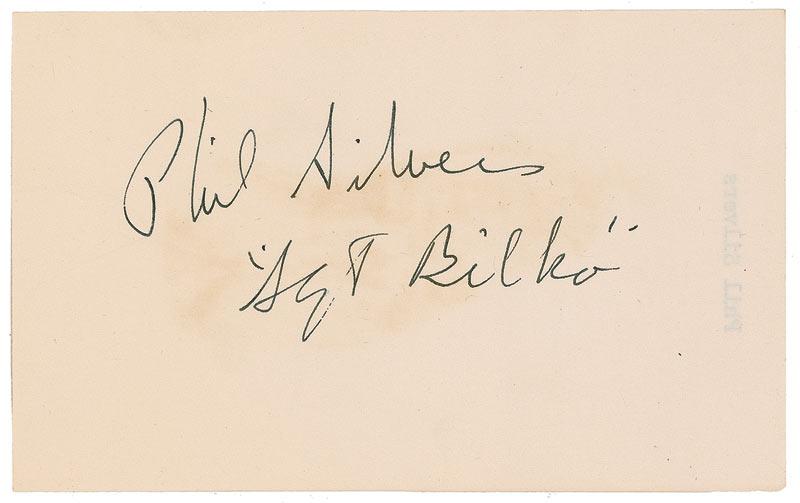 Phil Silvers
"Sgt Bilko"
Phil Silvers